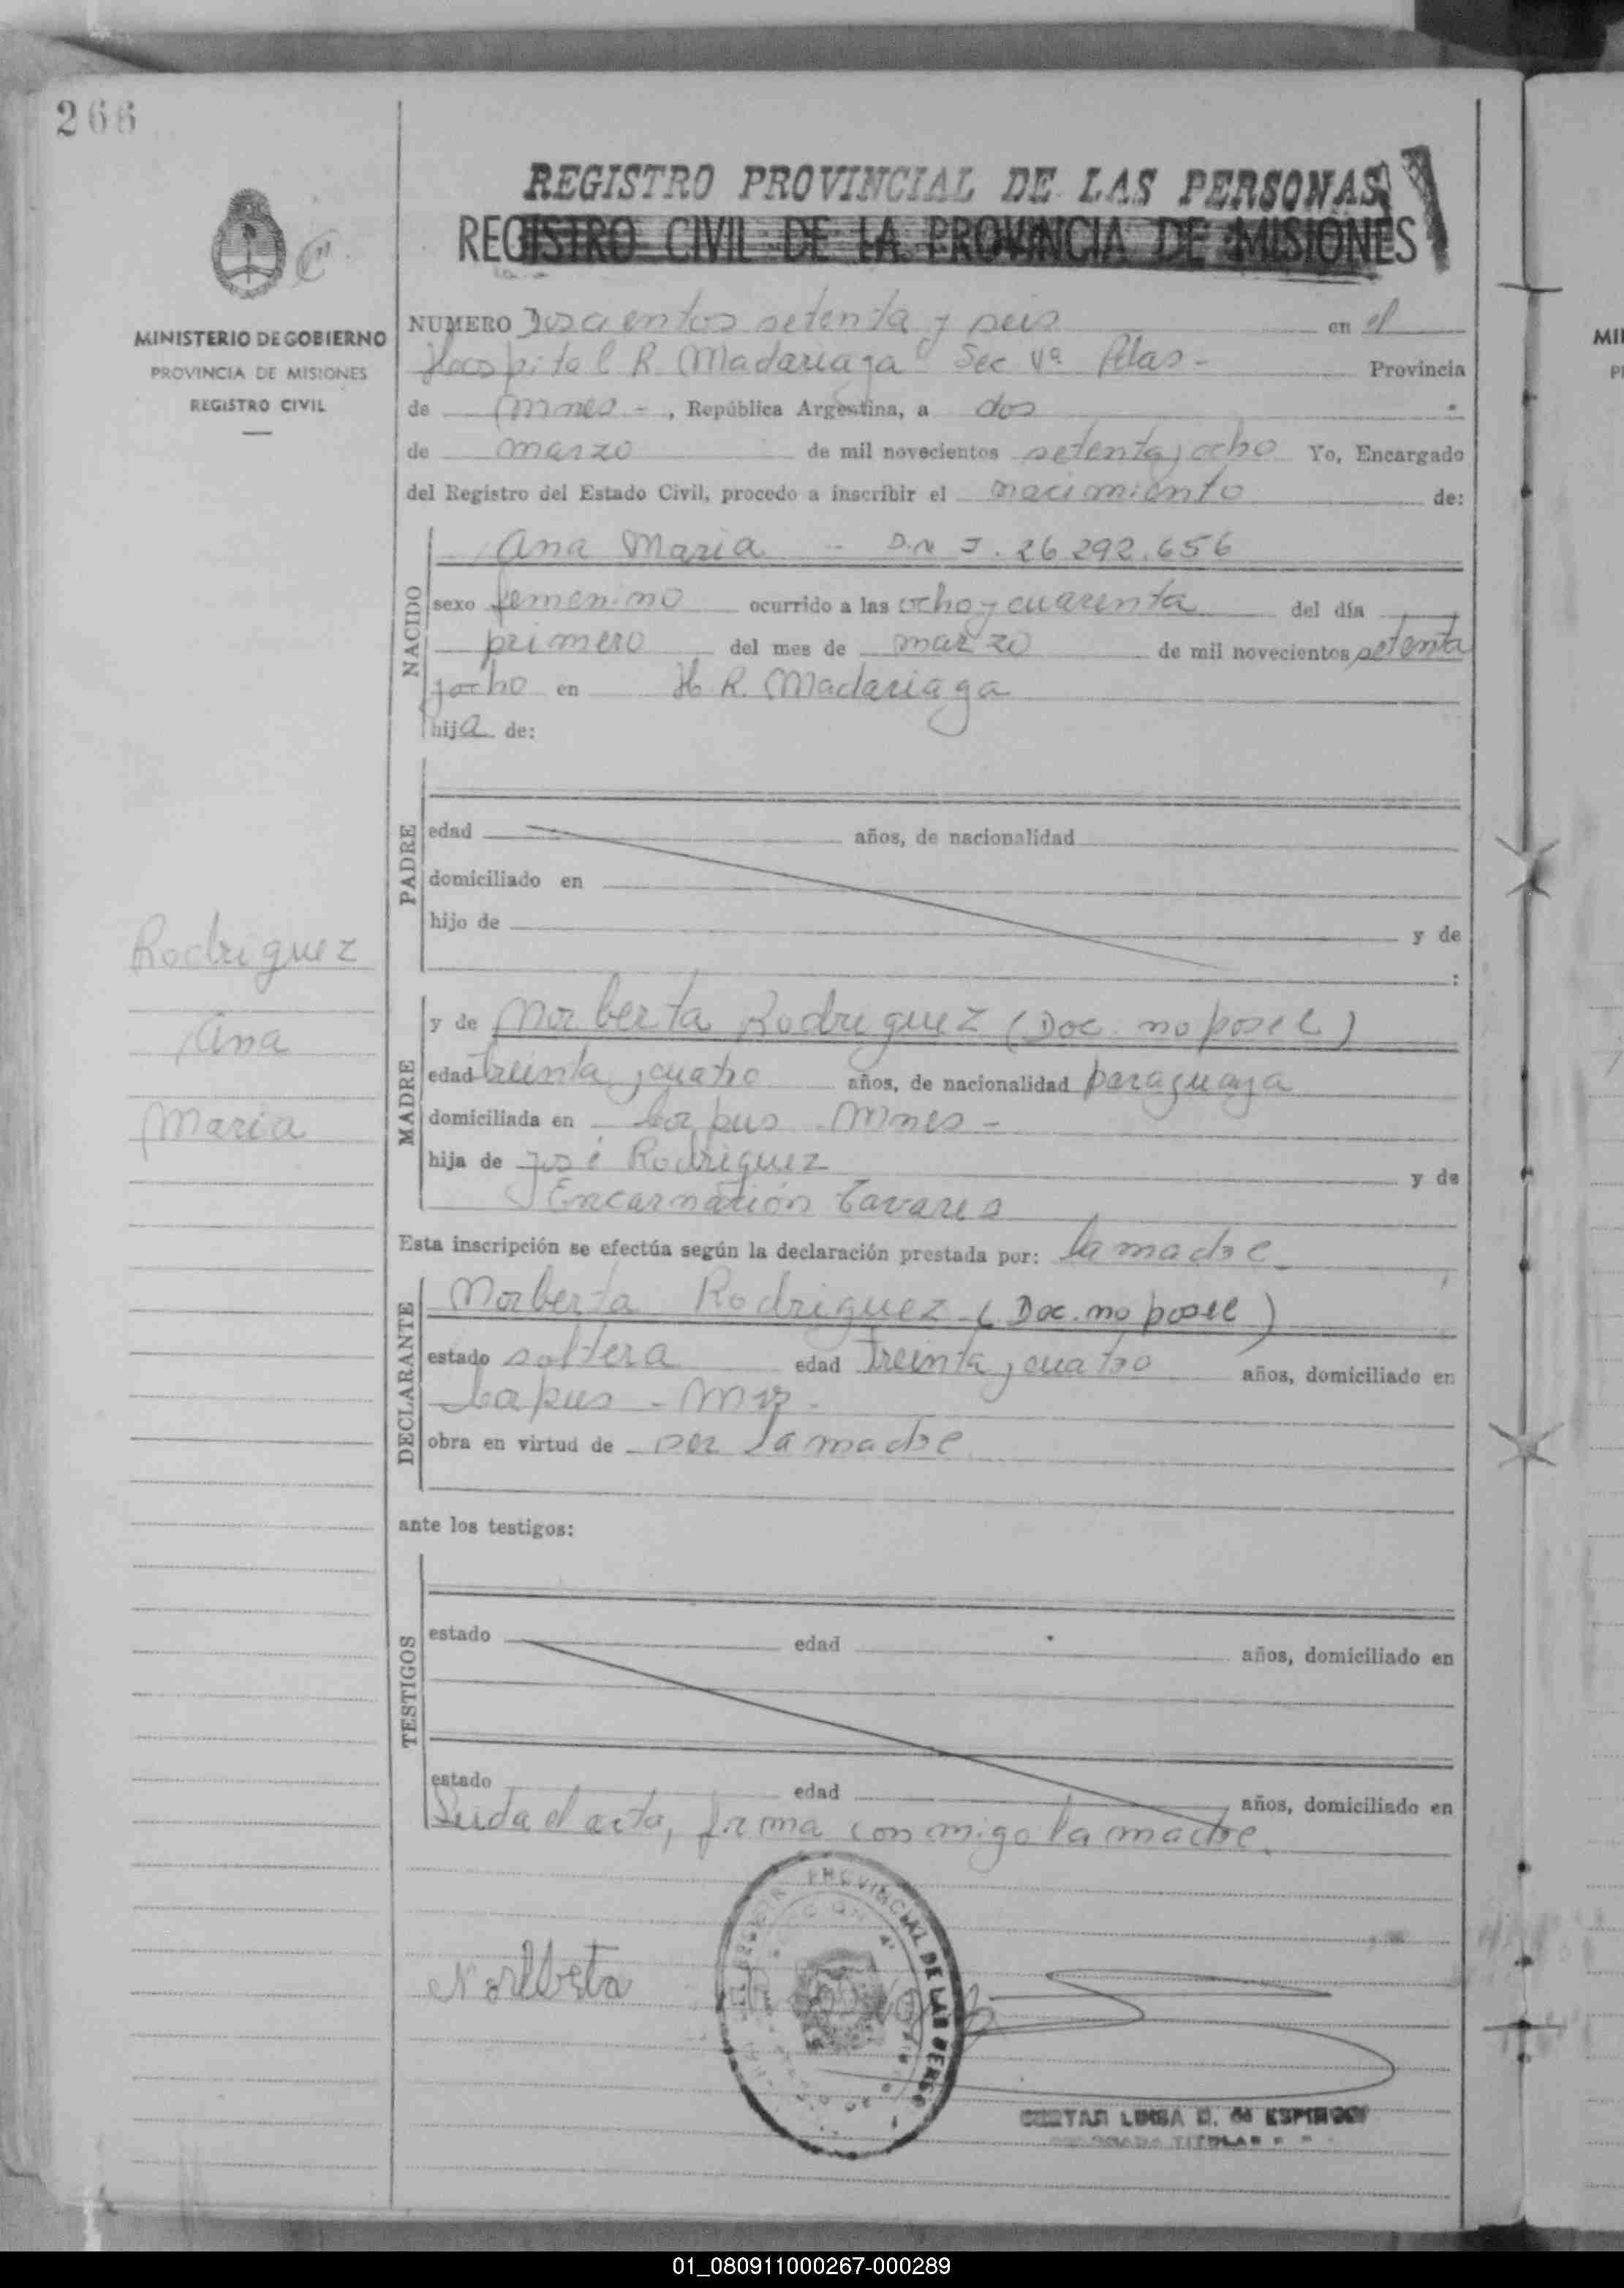 266
REGISTRO PROVINCIAL DE LAS PERSONAS
REGISTRO CIVIL DE LA PROVINCIA DE MISIONES
MINISTERIO DE GOBIERNO
PROVINCIA DE MISIONES
REGISTRO CIVIL
NUMERO Doscientos setenta y seis en el
Hospital R. Madariaga Sec Vª Pdas - Provincia
de Mnes - , República Argentina, a dos
de marzo de mil novecientos setenta y ocho Yo, Encargado
del Registro del Estado Civil, procedo a inscribir el nacimiento de:
NACIDO
Ana Maria - D.N I. 26 292.656
sexo femenino ocurrido a las ocho y cuarenta del día
primero del mes de marzo de mil novecientos setenta
y ocho en H. R. Madariaga
hija de:
PADRE
edad años, de nacionalidad
domiciliado en
hijo de y de
:
Rodriguez
Ana
Maria
MADRE
y de Norberta Rodriguez (Doc. no posee)
edad treinta y cuatro años, de nacionalidad paraguaya
domiciliada en Corpus Mnes -
hija de José Rodriguez y de
Encarnación Tavares
Esta inscripción se efectúa según la declaración prestada por: la madre
DECLARANTE
Norberta Rodriguez - (Doc. no posee)
estado soltera edad treinta y cuatro años, domiciliado en
Corpus -
obra en virtud de ser la madre
ante los testigos:
TESTIGOS
estado edad años, domiciliado en
estado edad años, domiciliado en
Leida el acta, firma conmigo la madre.
Norlberta
PROVINCIAL DE LAS PERSO
LUISA D. de
TITULAR
01_080911000267-000289